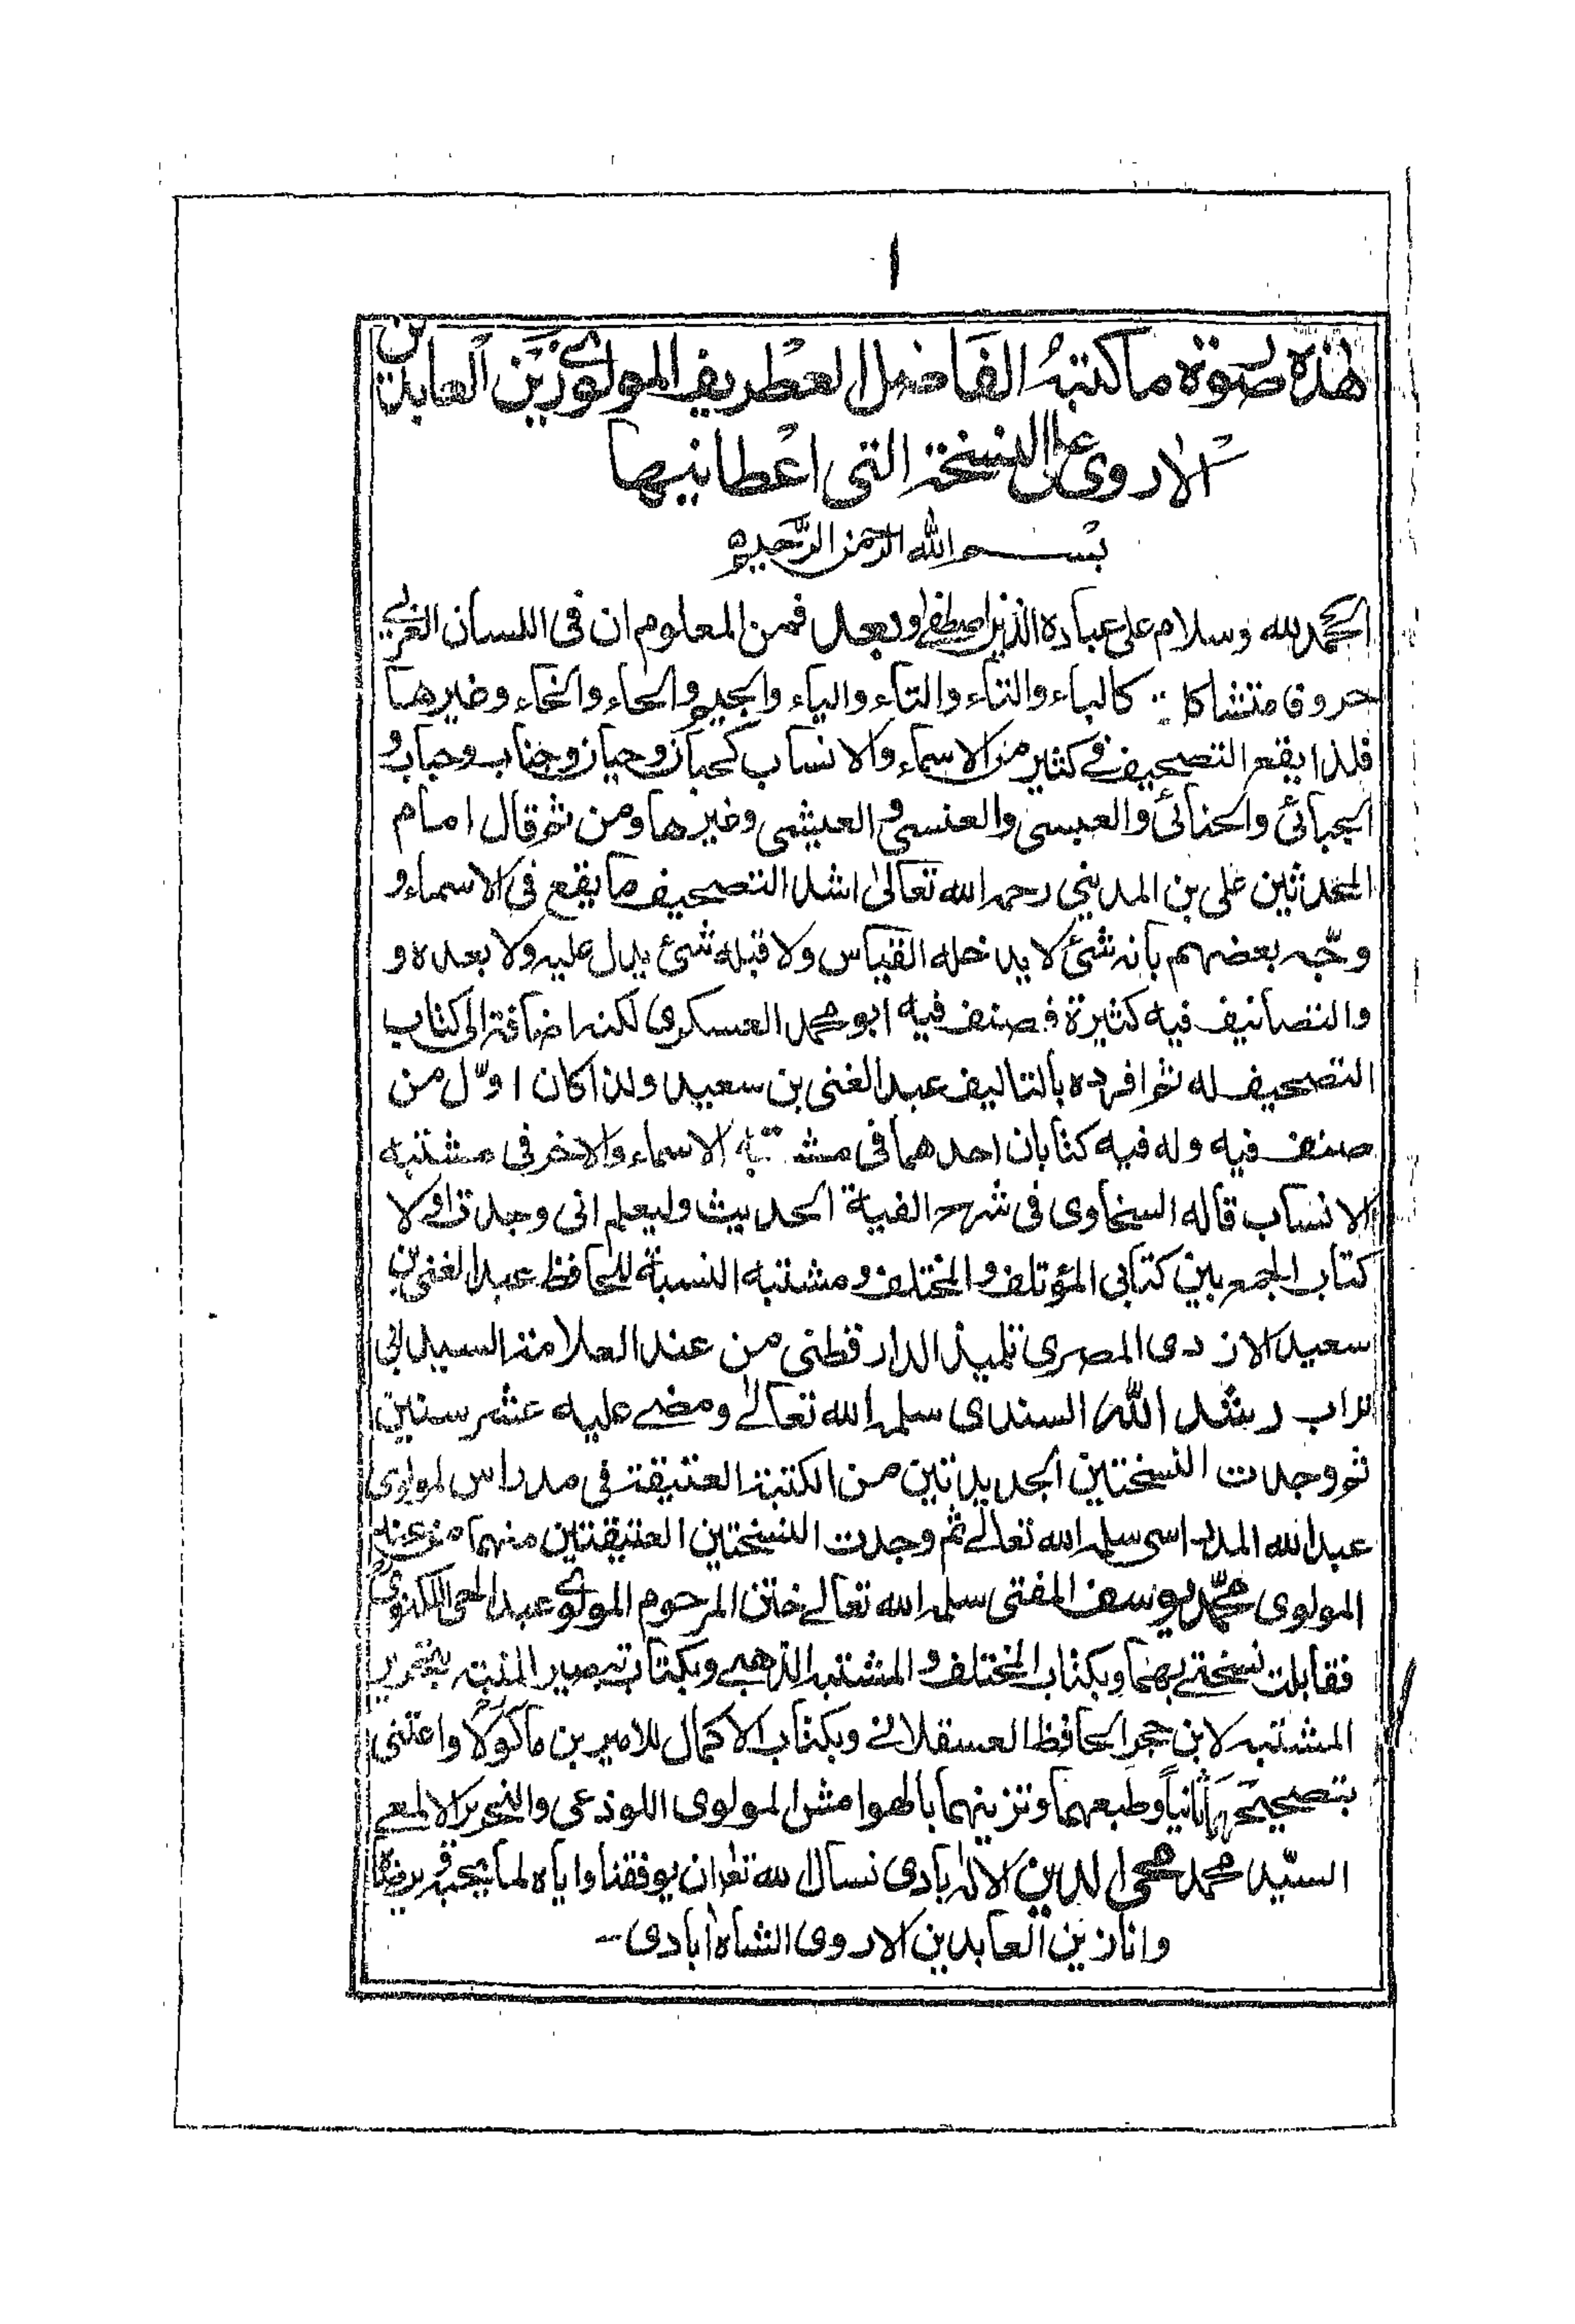 ١
هذه صورة ما كتبه الفاضل الغطريف المولوي زين العابدين
الاروى على النسخة التى اعطانيها
بسم الله الرحمن الرحيم
الحمد لله وسلام على عباده الذين اصطفى وبعد فمن المعلوم ان فى اللسان العربي
حروفا متشاكلة كالباء والثاء والتاء والياء والجيم والحاء والخاء وغيرها
فلذا يقع التصحيف في كثير من الاسماء والانساب كحباز وحيان وجناب وحباب و
الجبائئ والحنائئ والعبسى والعنسى و العيشى وغيرها ومن ثم قال امام
المحدثين على بن المديني رحمه الله تعالىٰ اشد التصحيف ما يقع فى الاسماء و
وجّه بعضهم بأنه شئ لا يدخله القياس ولا قبله شئ يدل عليه ولا بعده و
والتصانيف فيه كثيرة فصنف فيه ابو محمد العسكرى لكنه اضافة الى كتاب
التصحيف له ثم افرده بالتاليف عبد الغنى بن سعيد ولذا كان اوّل من
صنف فيه وله فيه كتابان احدهما فى مشتبه الاسماء والاخر فى مشتبه
الانساب قاله السخاوى فى شرح الفية الحديث وليعلم انى وجدت اولا
كتاب الجمع بين كتابى المؤتلف والمختلف و مشتبه النسبة للحافظ عبد الغنى بن
سعيد الازدى المصرى تلميذ الدارقطنى من عند العلامة السيد ابى
تراب رشد الله السندى سلمه الله تعالےٰ ومضے عليه عشر سنين
ثم وجدت النسختين الجديدتين من الكتبة العتيقة فى مدراس لمولوى
عبد الله المدراسى سلمه الله تعالےٰ ثم وجدت النسختين العتيقتين منهما من عند
المولوى محمّد يوسف المفتى سلمه الله تعالے ختن المرحوم المولوي عبد الحى اللكنوى
فقابلت نسختے بهما وبكتاب المختلف و المشتبه الذهبے وبكتاب تبصير المنتبه بتحرير
المشتبه لابن حجر الحافظ العسقلانے وبكتاب الاكمال للامير بن ماكولا واعتنى
بتصحيحهما ثانياً وطبعهما وتزيينهما بالهوامش المولوى اللوذعى والنحرير الالمعے
السيّد محمد محى الدين الالٰه بادى نسال الله تعالى ان يوفقنا واياه لما يحبه ويرضاه
وانا زين العابدين الاروى الشاه اٰبادى